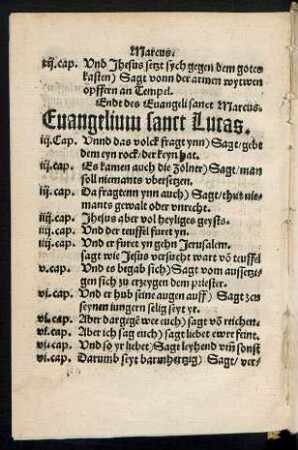 Marcus.
xij.cap. Vnd Jhesus setzt sych gegen dem gotes
kasten) Sagt vonn der armen wytwen
opffern an Tempel.
Endt des Euangeli sanct Marcus.
Euangelium sanct Lucas.
iij.Cap. Vnnd das volck fragt ynn) Sagt/gebt
dem eyn rock/der keyn hat.
iij.cap. (Es kamen auch die Zölner) Sagt/man
soll niemants vbersetzen.
iij.cap. Da fragtenn ynn auch) Sagt/thut nie-
mants gewalt oder vnrecht.
iiij.cap. Jhesus aber vol heyliges geysts.
iiij.cap. Vnd der teuffel furet yn.
iiij.cap. Vnd er furet yn gehn Jerusalem.
sagt wie Jesus versucht wart vō teuffel
v.cap. Vnd es begab sich) Sagt vom aussetzi-
gen sich zu erzeygen dem priester.
vi.cap. Vnd er hub seine augen auff) Sagt zen
seynen jungern selig seyt yr.
vi.cap. Aber dargegē wee euch) sagt vō reichen.
vi.cap. Aber ich sag euch) sagt liebet ewre feint.
vi.cap. Vnd so yr liebet) Sagt leyhend vm̄ sonst
vi.cap. Darumb seyt barmhertzig) Sagt/ ver-